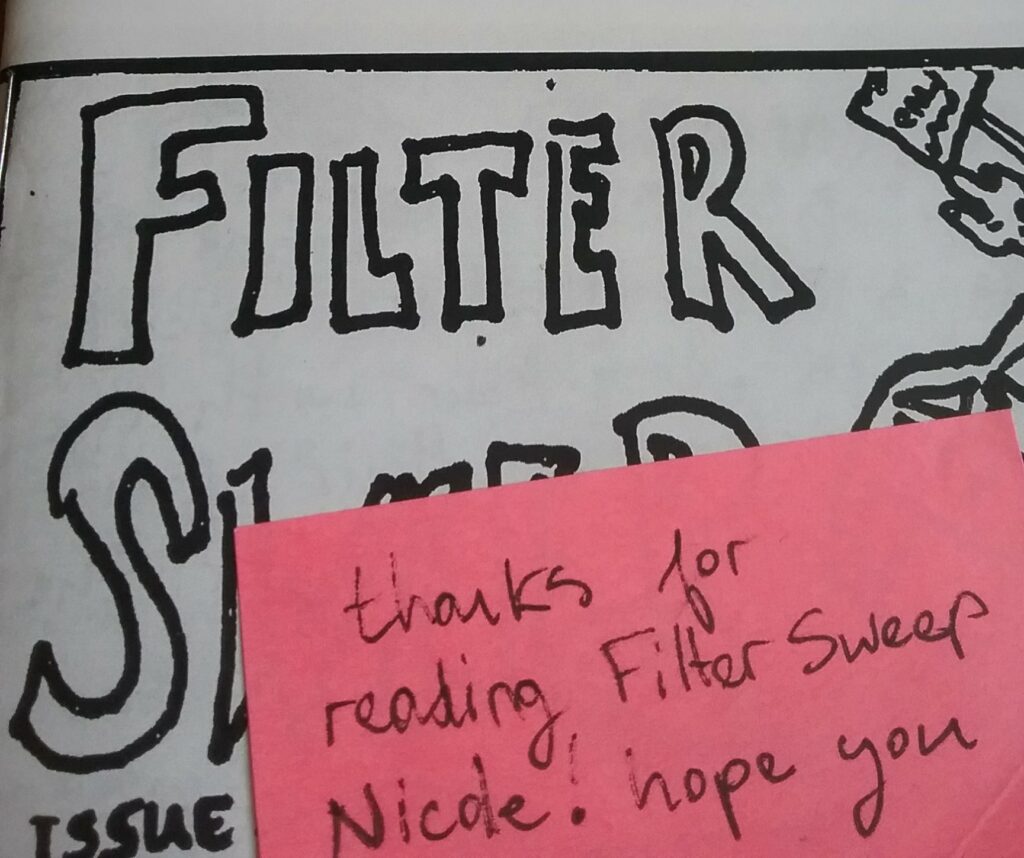 FILTER
ISSUE
thanks for
reading Filter Sweep
Nicole! hope you